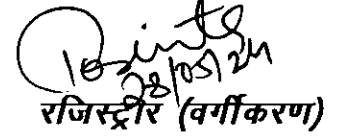 28/05/24
रजिस्ट्रार (वर्गीकरण)